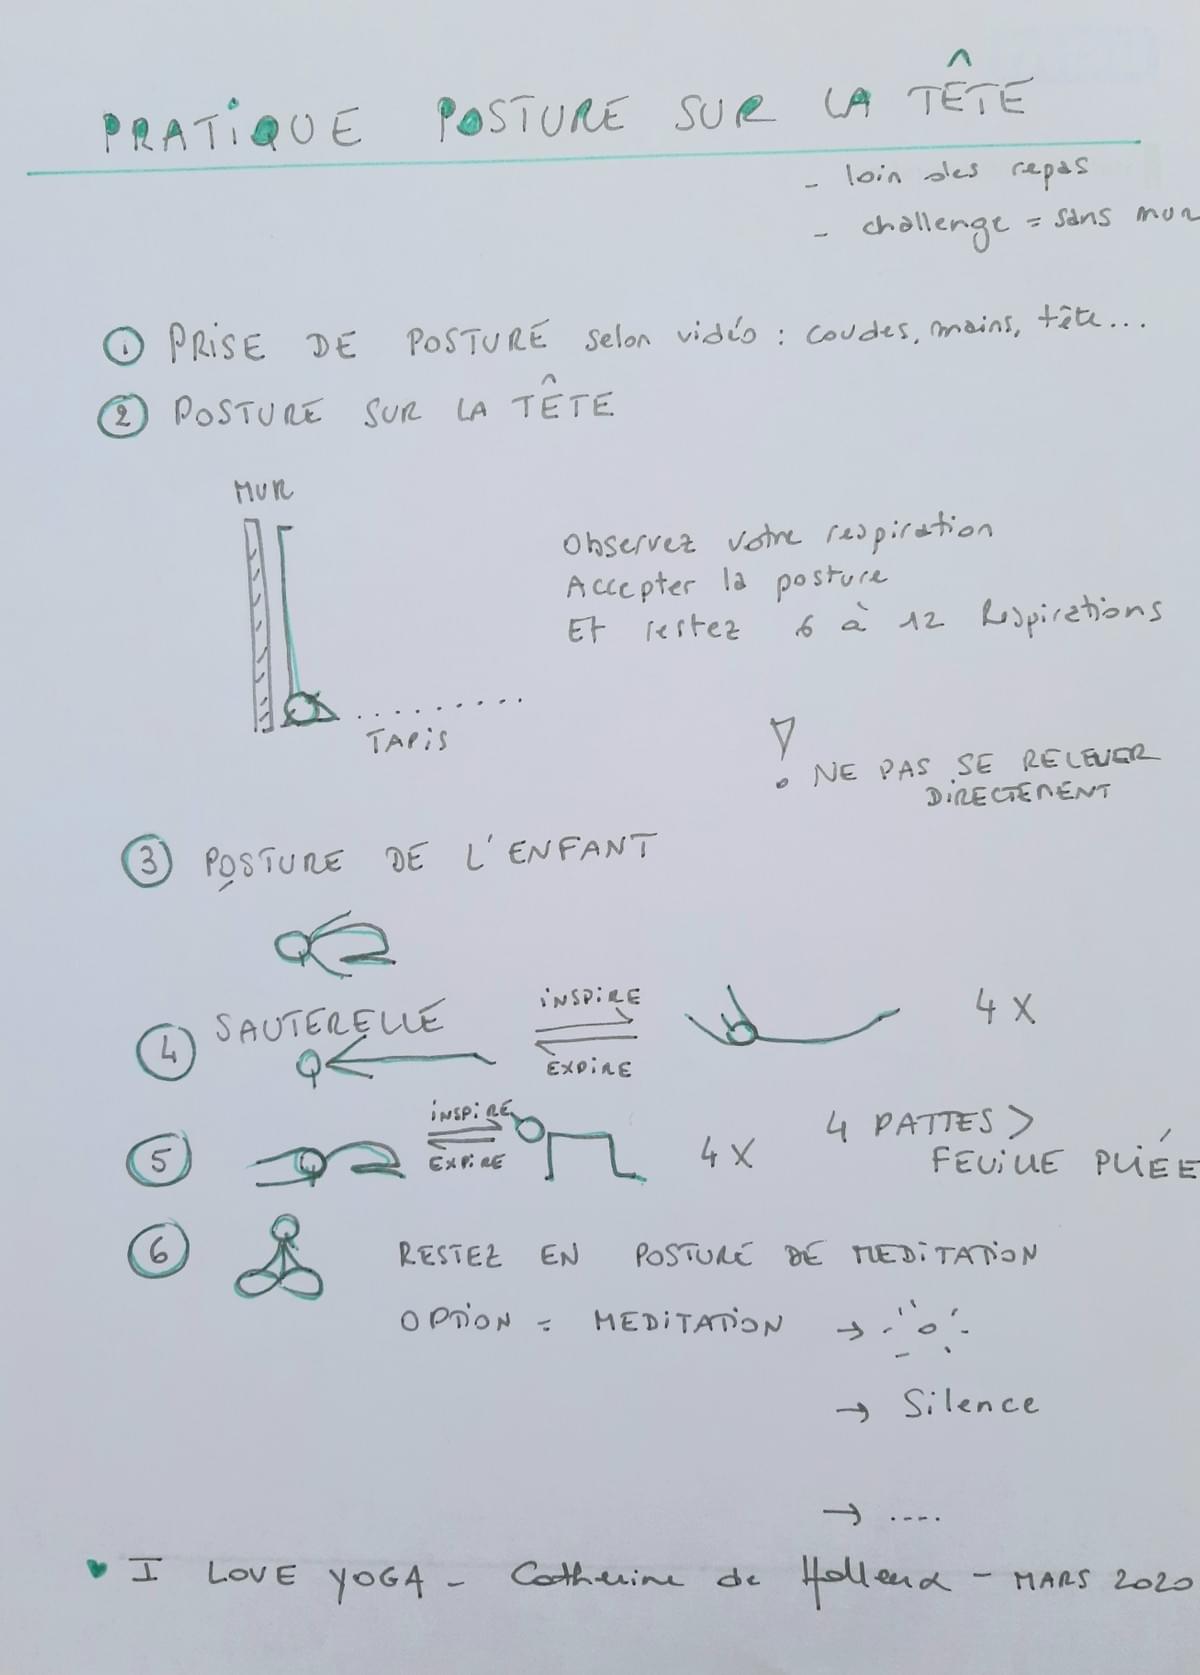 PRATIQUE POSTURE SUR LA TÊTE
- loin des repas
- challenge = sans mur
1 PRISE DE POSTURE selon vidéo : coudes, mains, tête...
2 POSTURE SUR LA TÊTE
MUR
Observez votre respiration
Accepter la posture
Et restez 6 à 12 Respirations
TAPIS
! NE PAS SE RELEVER
DIRECTEMENT
3 POSTURE DE L'ENFANT
4 SAUTERELLE
INSPIRE
EXPIRE
4 X
5
INSPIRE
EXPIRE
4 X
4 PATTES >
FEUILLE PLIÉE
6 RESTEZ EN POSTURE DE MEDITATION
OPTION = MEDITATION →
→ Silence
→ ....
♥ I LOVE YOGA - Catherine de Hollend - MARS 2020